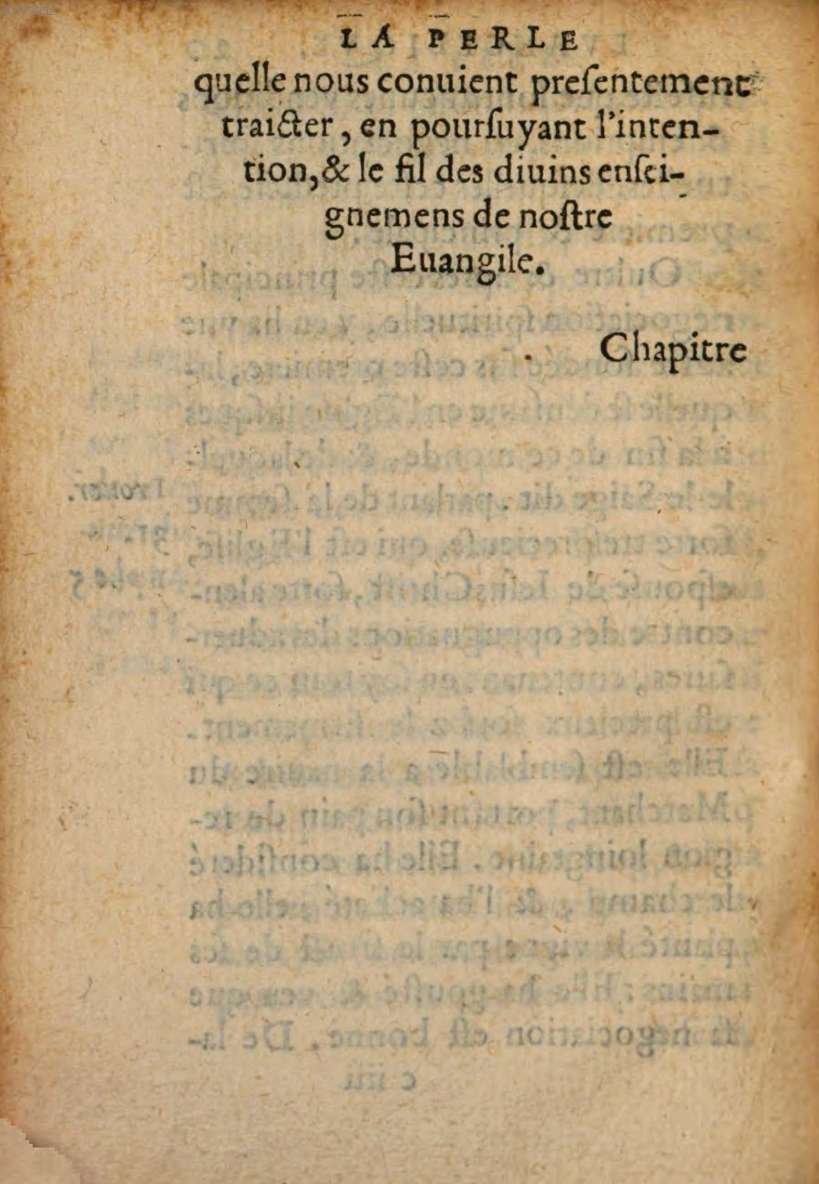 LA PERLE
quelle nous conuient preſentement
traicter, en pourſuyant l'inten-
tion,& le fil des diuins enſei-
gnemens de noſtre
Euangile.
Chapitre